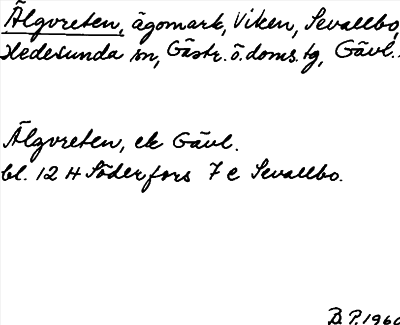 Älgvreten, ägomark, Viken, Sevallbo,
Hedesunda sn, Gästr. ö. doms. tg, Gävl..
Älgvreten, ek Gävl.
bl. 12 H Söderfors 7 e Sevallbo.
B. P. 1960